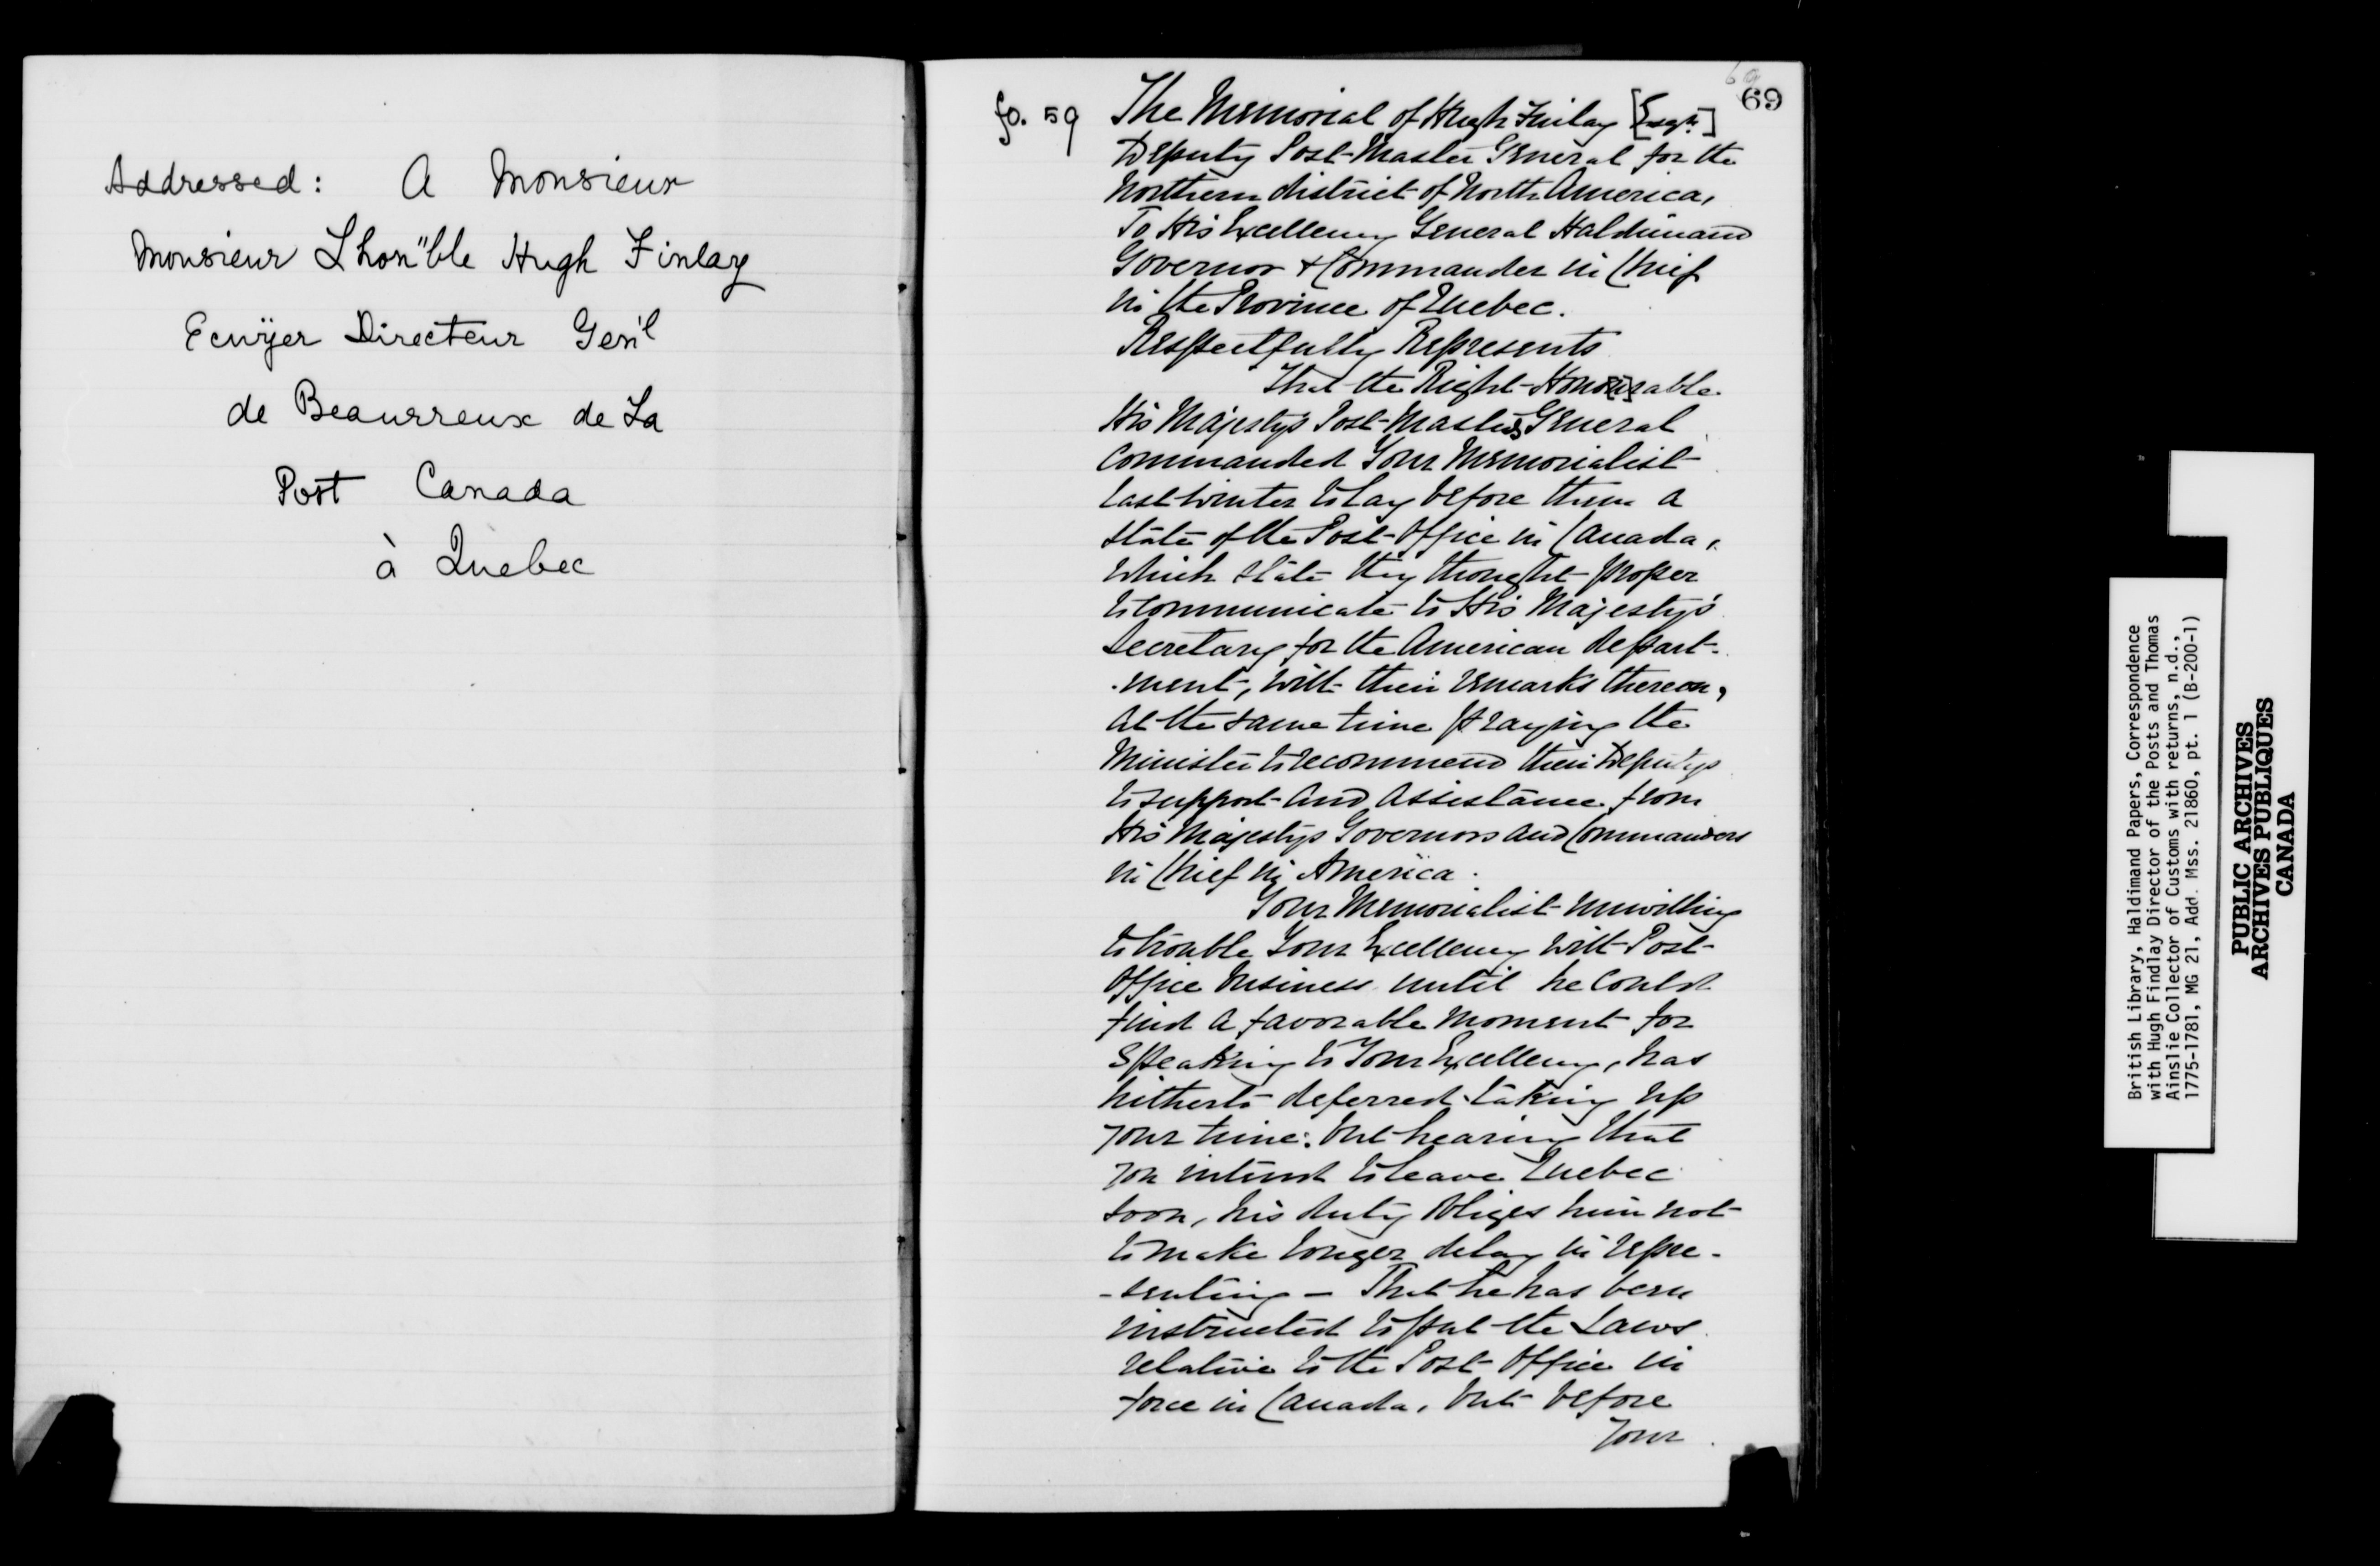 Addressed: A Monsieur
Monsieur Lhon"ble Hugh Finlay
Ecuÿer Directeur Gen'l
de Beaurreux de La
Post Canada
à Quebec
69
69
fo. 59
The Memorial of Hugh Finlay [Esqr.]
Deputy Post-Master General for the
Northern district of North America,
To His Excellency General Haldimand
Governor & Commander in Chief
in the Province of Quebec.
Respectfully Represents
That the Right-Hono[u]rable
His Majesty's Post-Masters General
Commanded Your Memorialist
last winter to lay before them a
state of the Post-Office in Canada,
which state they thought proper
to communicate to His Majesty's
Secretary for the American depart-
-ment, with their remarks thereon,
at the same time praying the
Minister to recommend their Deputys
to support and assistance from
His Majestys Governors and Commanders
in Chief in America.
Your Memorialist unwilling
to trouble Your Excellency with Post-
Office business until he could
find a favorable moment for
speaking to Your Excellency, has
hitherto deferred taking up
your time: but hearing that
you intend to leave Quebec
soon, his duty obliges him not
to make longer delay in repre-
-senting - That he has been
instructed to put the Laws
relative to the Post Office in
force in Canada, but before
Your
British Library, Haldimand Papers, Correspondence
with Hugh Findlay Director of the Posts and Thomas
Ainslie Collector of Customs with returns, n.d.,
1775-1781, MG 21, Add. Mss. 21860, pt. 1 (B-200-1)
PUBLIC ARCHIVES
ARCHIVES PUBLIQUES
CANADA